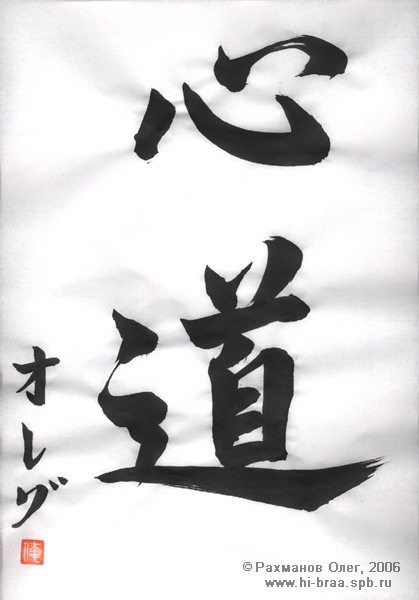 心道
オレグ
俺
©Рахманов Олег, 2006
www.hi-braa.spb.ru